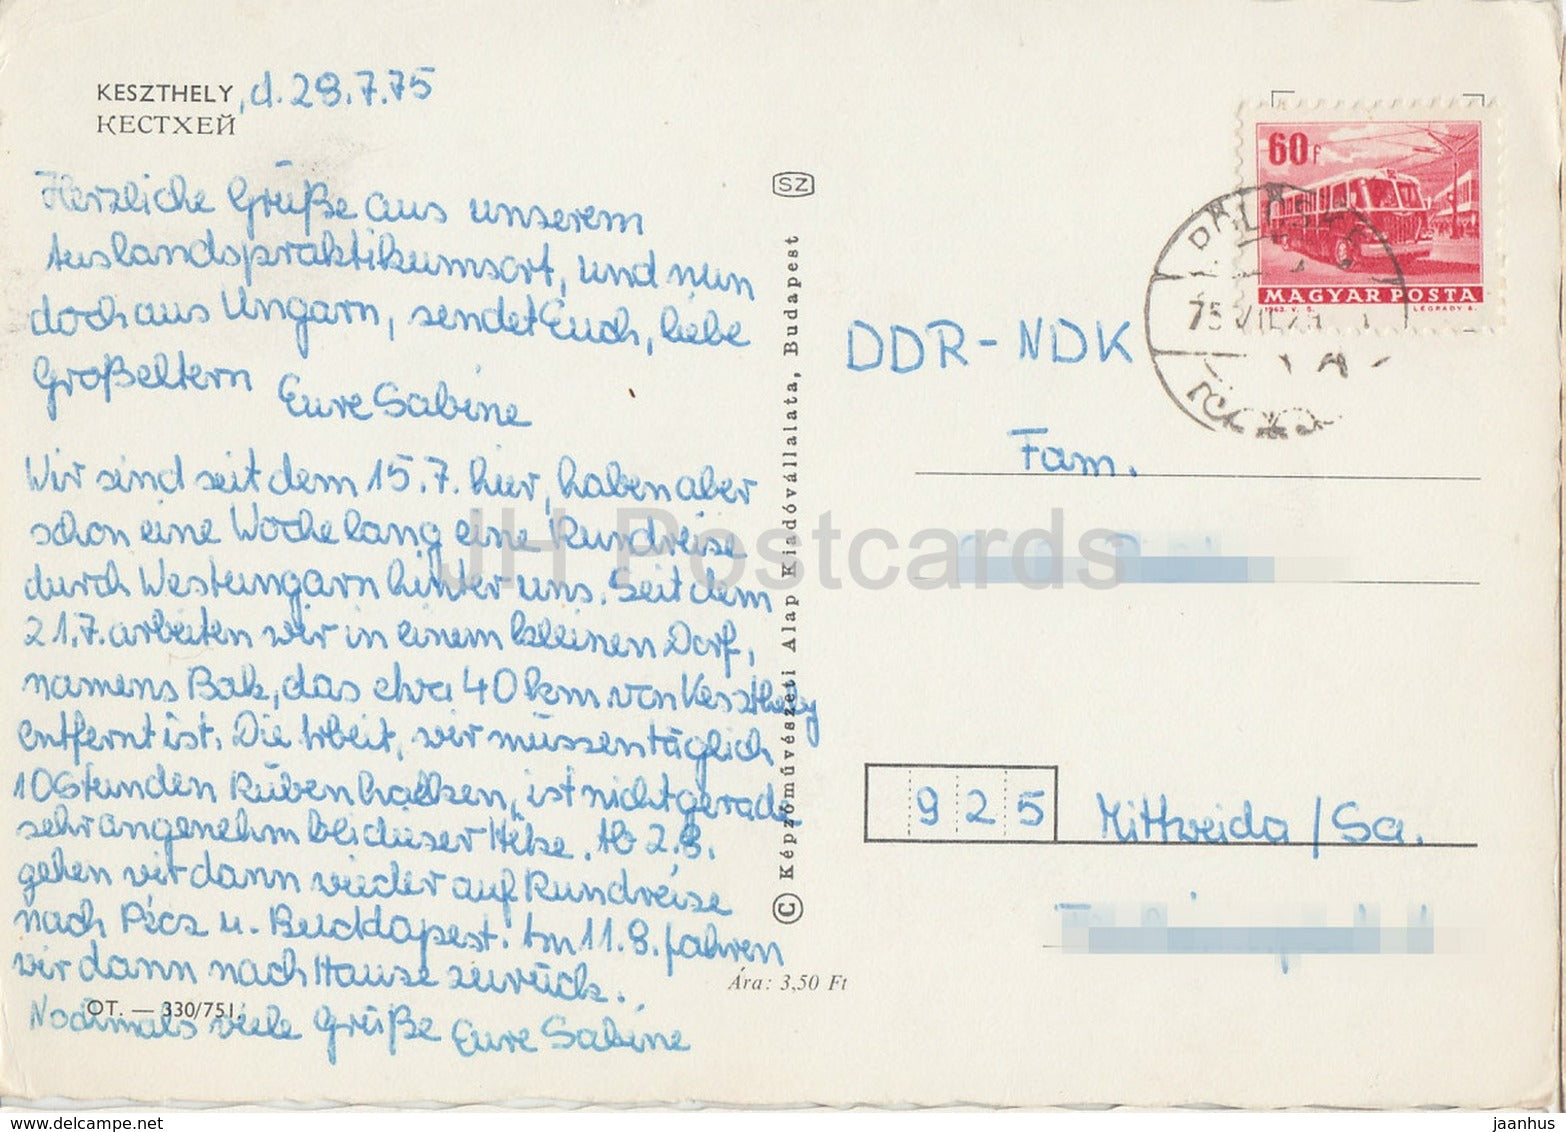 KESZTHELY, d. 29.7.75
КЕСТХЕЙ
Herzliche Grüße aus unserem
Auslandspraktikumsort, und nun
doch aus Ungarn, sendet Euch, liebe
Großeltern
Eure Sabine
Wir sind seit dem 15.7. hier, haben aber
schon eine Woche lang eine Rundreise
durch Westungarn hinter uns. Seit dem
21.7. arbeiten wir in einem kleinen Dorf,
namens Bak, das etwa 40 km von Keszthely
entfernt ist. Die Arbeit, wir müssen täglich
10 Stunden Rüben hacken, ist nicht gerade
sehr angenehm bei dieser Hitze. Ab 2.8.
gehen wir dann wieder auf Rundreise
nach Pécs u. Buddapest. Am 11.8. fahren
wir dann nach Hause zurück.
OT. — 330/751.
Nochmals viele Grüße Eure Sabine
SZ
© Képzőművészeti Alap Kiadóvállalata, Budapest
Ára: 3,50 Ft
60f
MAGYAR POSTA
1963. V. S.
LÉGRÁDY S.
75 VII.29
DDR - NDK
Fam.
925 Mittweida / Sa.
JH Postcards
www.delcampe.net
jaanhus